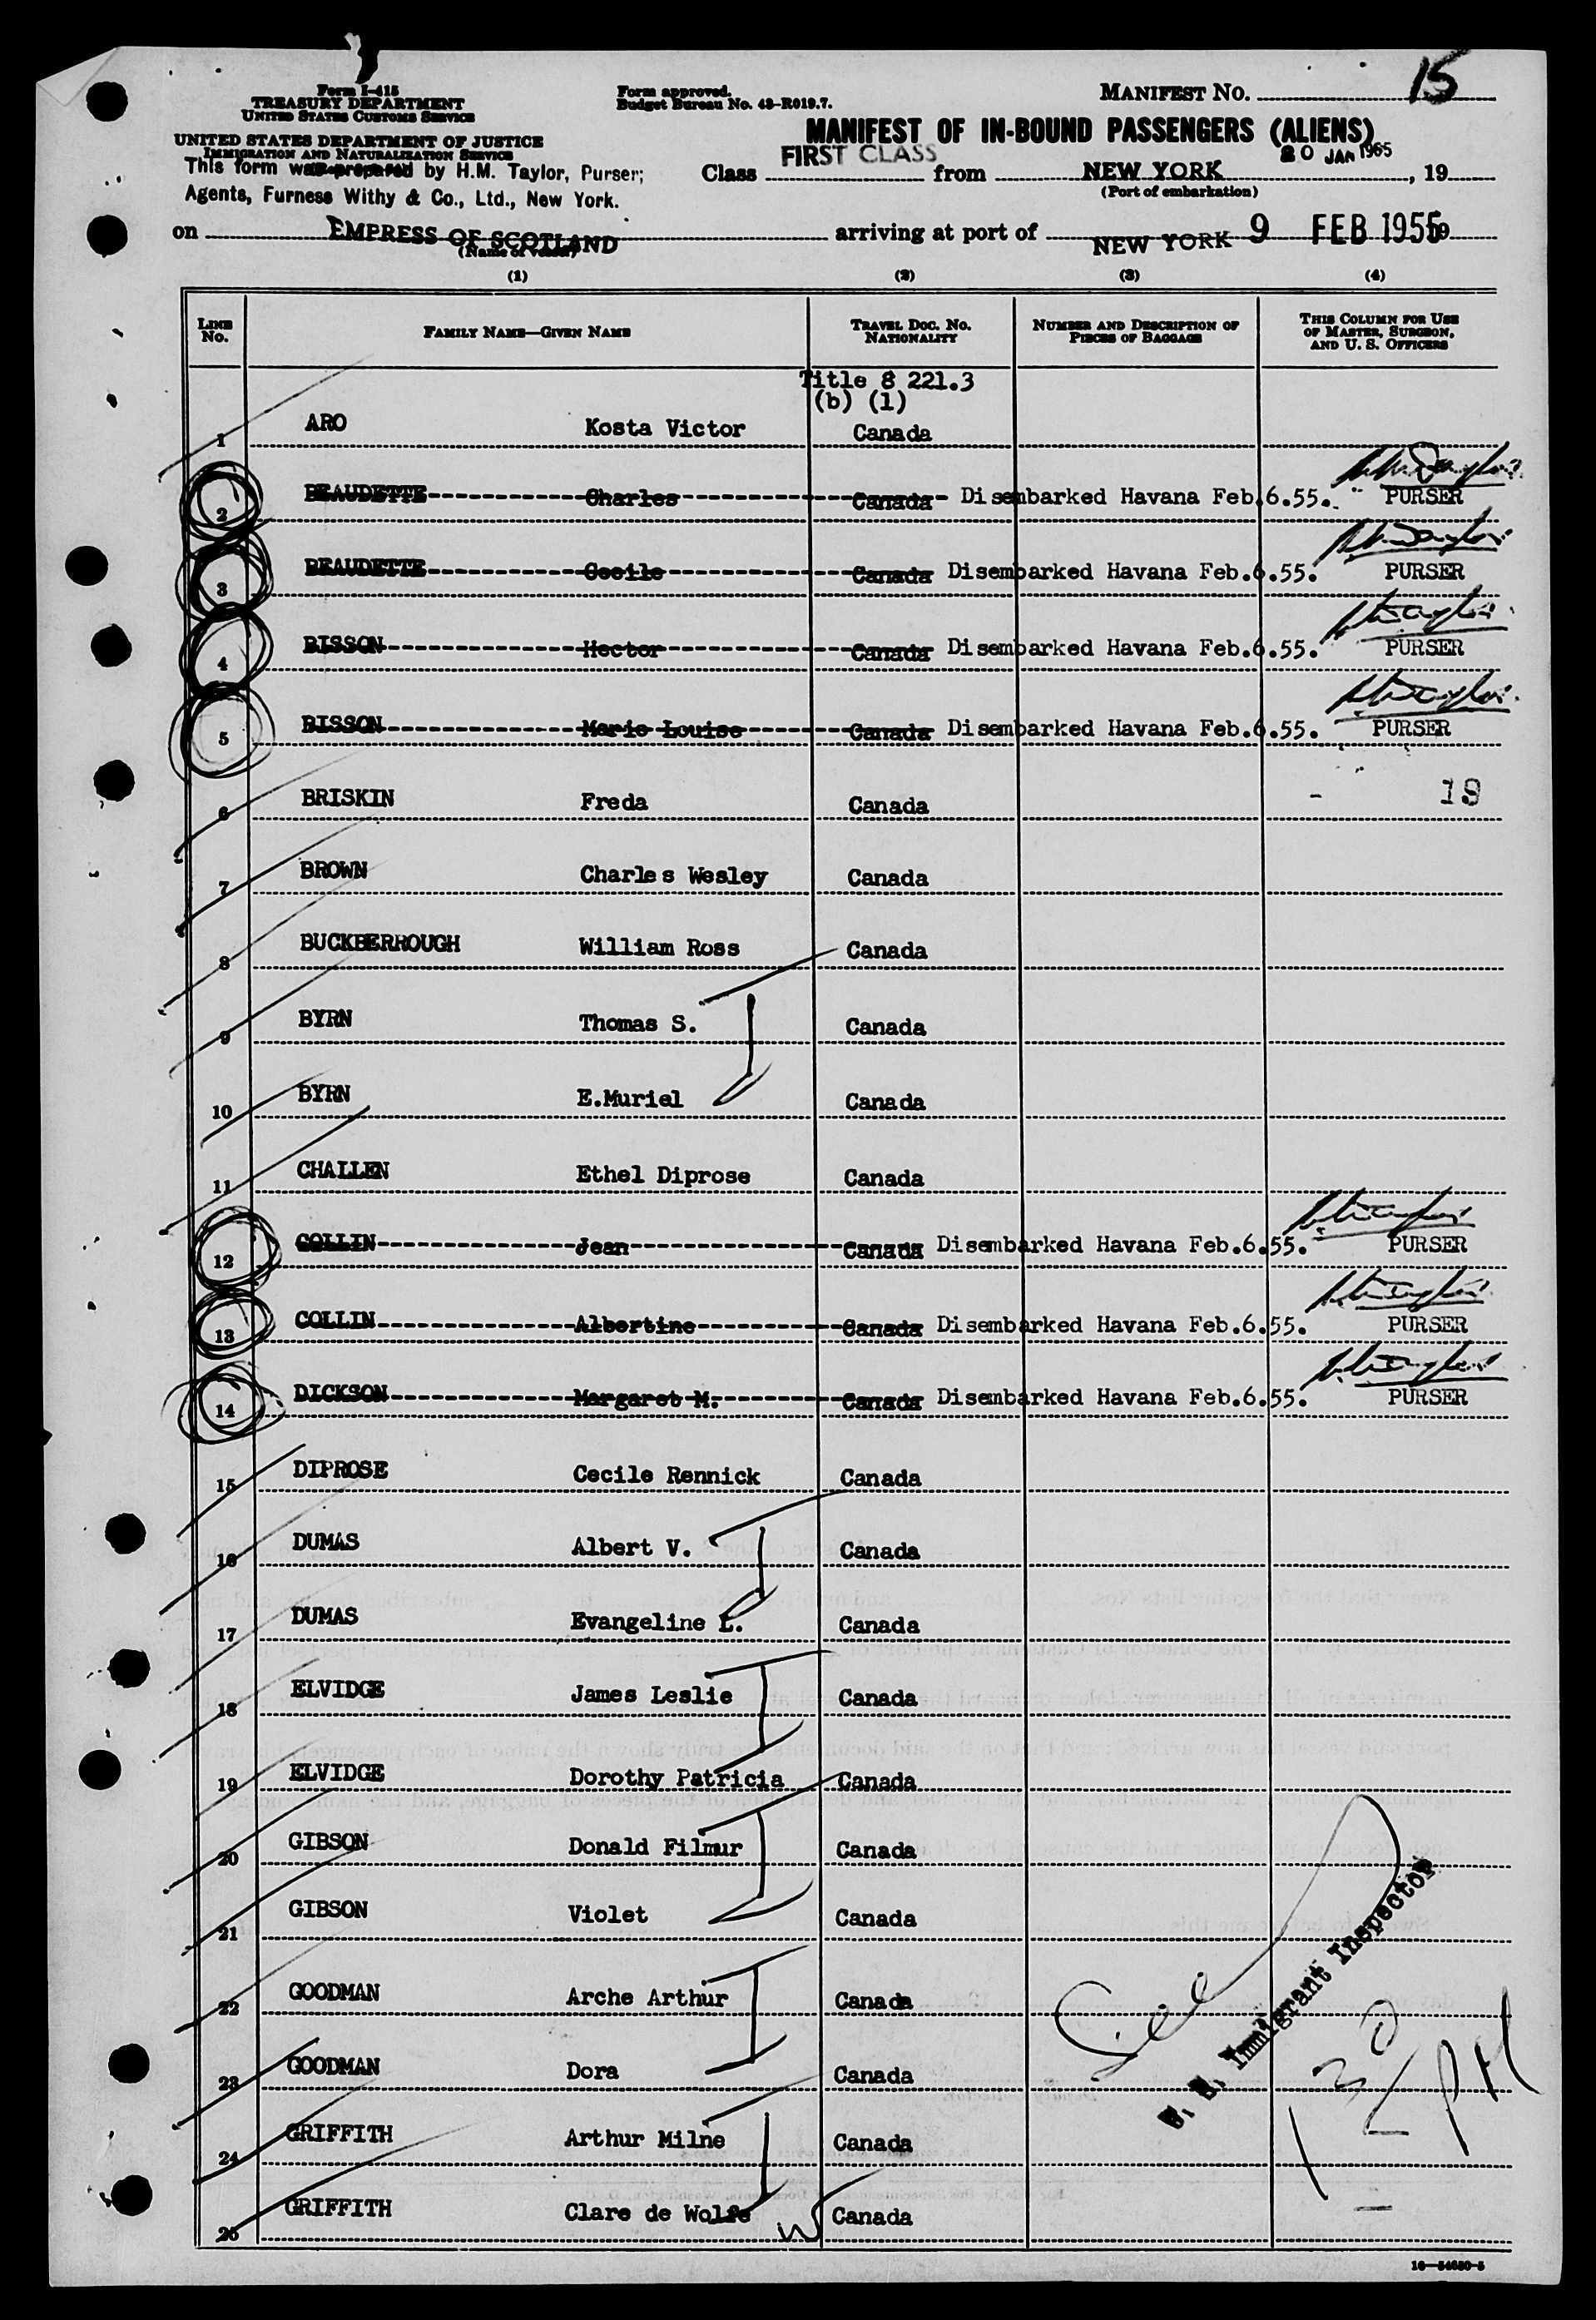 15
Form I-415
TREASURY DEPARTMENT
UNITED STATES CUSTOMS SERVICE
Form approved.
Budget Bureau No. 43-R019.7.
MANIFEST NO.
UNITED STATES DEPARTMENT OF JUSTICE
IMMIGRATION AND NATURALIZATION SERVICE
MANIFEST OF IN-BOUND PASSENGERS (ALIENS)
This form was prepared by H.M. Taylor, Purser;
Agents, Furness Withy & Co., Ltd., New York.
Class FIRST CLASS from NEW YORK 20 JAN 1955, 19
(Port of embarkation)
on EMPRESS OF SCOTLAND arriving at port of NEW YORK 9 FEB 1955 19
(Name of vessel)
(1) (2) (3) (4)
LINE No. FAMILY NAME—GIVEN NAME TRAVEL DOC. NO. NATIONALITY NUMBER AND DESCRIPTION OF PIECES OF BAGGAGE THIS COLUMN FOR USE OF MASTER, SURGEON, AND U. S. OFFICERS
Title 8 221.3
(b) (1)
1 ARO Kosta Victor Canada
2 BEAUDETTE Charles Canada Disembarked Havana Feb.6.55. PURSER
3 BEAUDETTE Cecile Canada Disembarked Havana Feb.6.55. PURSER
4 BISSON Hector Canada Disembarked Havana Feb.6.55. PURSER
5 BISSON Marie Louise Canada Disembarked Havana Feb.6.55. PURSER
6 BRISKIN Freda Canada - 19
7 BROWN Charles Wesley Canada
8 BUCKBERROUGH William Ross Canada
9 BYRN Thomas S. Canada
10 BYRN E.Muriel Canada
11 CHALLEN Ethel Diprose Canada
12 COLLIN Jean Canada Disembarked Havana Feb.6.55. PURSER
13 COLLIN Albertine Canada Disembarked Havana Feb.6.55. PURSER
14 DICKSON Margaret M. Canada Disembarked Havana Feb.6.55. PURSER
15 DIPROSE Cecile Rennick Canada
16 DUMAS Albert V. Canada
17 DUMAS Evangeline L. Canada
18 ELVIDGE James Leslie Canada
19 ELVIDGE Dorothy Patricia Canada
20 GIBSON Donald Filmur Canada
21 GIBSON Violet Canada
22 GOODMAN Arche Arthur Canada
23 GOODMAN Dora Canada
24 GRIFFITH Arthur Milne Canada
25 GRIFFITH Clare de Wolfe Canada
U. S. Immigrant Inspector
16—54650-5